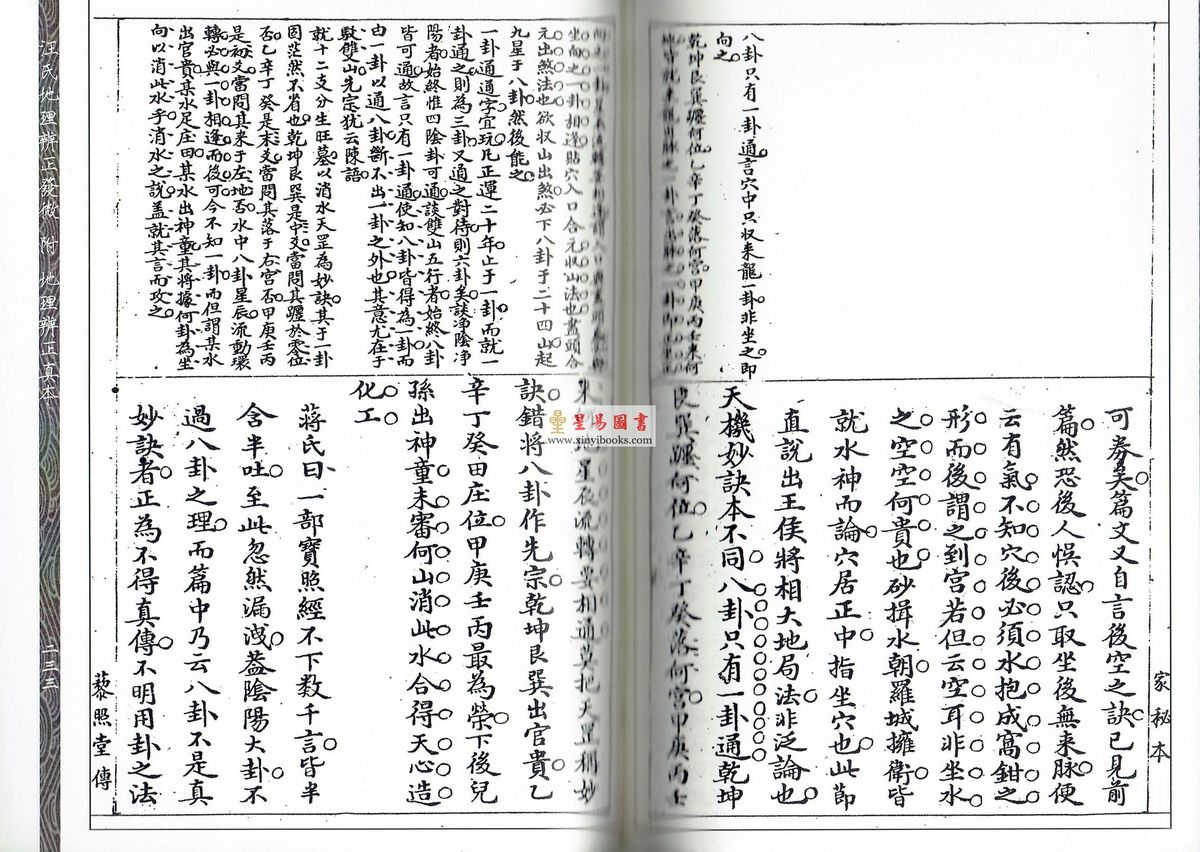 八卦只有一卦通言穴中只収来龍一卦非坐之即
向之
乾坤艮巽躔何位乙辛丁癸落何宮甲庚丙壬来何
坐向之一卦相逢貼穴入口合元収山法也盡頭合
元出煞法也欲収山出煞必下八卦于二十四山起
九星于八卦然後能之
一卦通通字宜玩凡正運二十年止于一卦而就一
卦通之則為三卦又通之對待則六卦矣談淨陰淨
陽者始終惟四陰卦可通談雙山五行者始終八卦
皆可通故言只有一卦通使知八卦皆得為一卦而
由一卦以通八卦斷不出一卦之外也其意尤在于
駁雙山先宗犹云陳語
就十二支分生旺墓以消水天罡為妙訣其于一卦
固茫然不省也乾坤艮巽是中爻當問其躔於零位
否乙辛丁癸是末爻當問其落于右宮否甲庚壬丙
是初爻當問其来于左地否水中八卦星辰流動環
轉必與一卦相逢而後可今不知一卦而但謂某水
出官貴某水足庄田某水出神童其將據何卦為坐
向以消此水乎消水之說盖就其言而攻之
可券矣篇文又自言後空之訣已見前
篇然恐後人悞認只取坐後無来脉便
云有氣不知穴後必須水抱成窩鉗之
形而後謂之到宮若但云空耳非坐水
之空空何貴也砂揖水朝羅城擁衛皆
就水神而論穴居正中指坐穴也此節
直說出王侯將相大地局法非泛論也
天機妙訣本不同八卦只有一卦通乾坤
艮巽躔何位乙辛丁癸落何宮甲庚丙壬
来何地星辰流轉要相通莫把天罡稱妙
訣錯將八卦作先宗乾坤艮巽出官貴乙
辛丁癸田庄位甲庚壬丙最為榮下後兒
孫出神童未審何山消此水合得天心造
化工
蔣氏曰一部寶照經不下数千言皆半
含半吐至此忽然漏洩葢陰陽大卦不
過八卦之理而篇中乃云八卦不是真
妙訣者正為不得真傳不明用卦之法
家秘本
藜照堂傳
汪氏地理辨正發微 附 地理辨正真本
二三三
星易圖書
www.xinyibooks.com